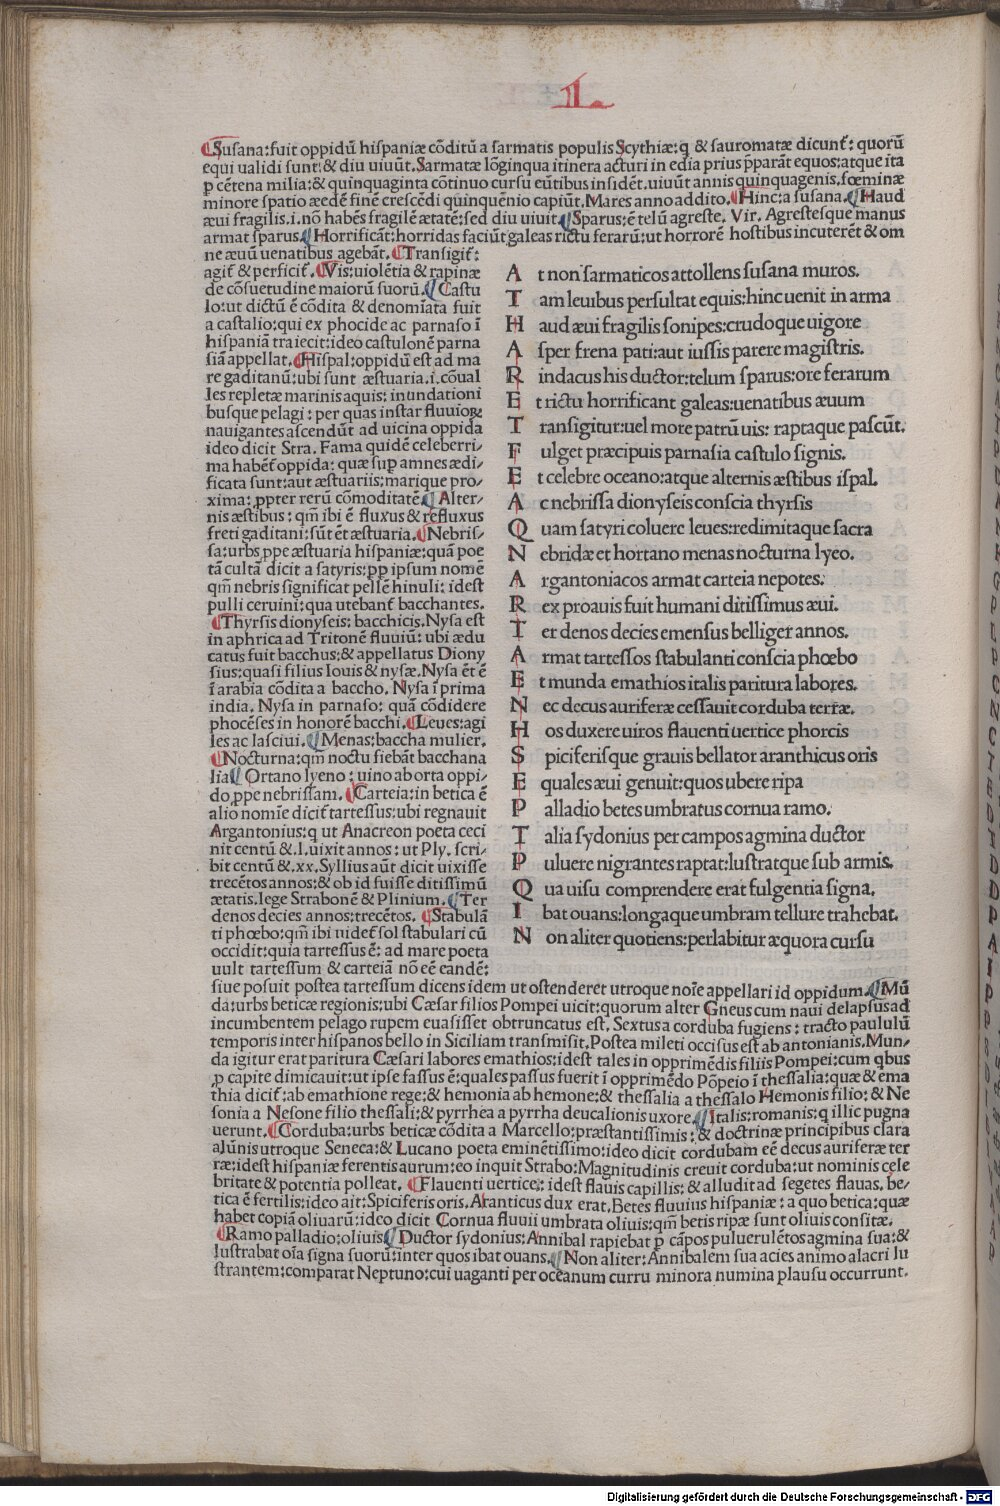 1.
Susana:fuit oppidū hispaniæ cōditū a sarmatis populis Scythiæ:q & sauromatæ dicunt̄: quorū
equi ualidi sunt:& diu uiuūt.Sarmatæ lōginqua itinera acturi in edia prius p̄parāt equos:atque ita
ꝑ cētena milia:& quinquaginta cōtinuo cursu eūtibus insidēt.uiuūt annis quinquagenis.fœminæ
minore spatio æedē finē crescēdi quinquēnio capiūt.Mares anno addito.Hinc:a susana.Haud
æui fragilis.i.nō habēs fragilē ætatē:sed diu uiuit.Sparus:ē telū agreste. Vir. Agrestesque manus
armat sparus.Horrificāt:horridas faciūt galeas rictu ferarū:ut horrorē hostibus incuterēt & om
ne æuū uenatibus agebāt.Transigit̄:
agit̄ & perficit̄.Vis:uiolētia & rapinæ
de cōsuetudine maiorū suorū.Castu
lo:ut dictū ē cōdita & denomīata fuit
a castalio:qui ex phocide ac parnaso ī
hispaniā traiecit:ideo castulonē parna
siā appellat.Hispal:oppidū est ad ma
re gaditanū:ubi sunt æstuaria.i.cōual
les repletæ marinis aquis: inundationi
busque pelagi : per quas instar fluuioꝝ
nauigantes ascendūt ad uicina oppida
ideo dicit Stra. Fama quidē celeberri-
ma habēt̄ oppida: quæ sup̄ amnes ædi-
ficata sunt:aut æstuariis:marique pro-
xima: ꝓpter rerū cōmoditatē.Alter-
nis æstibus : qm̄ ibi ē fluxus & refluxus
freti gaditani:sūt ēt æstuaria.Nebris-
sa:urbs ꝓpe æstuaria hispaniæ:quā poe
tā cultā dicit a satyris:ꝓp ipsum nomē
qm̄ nebris significat pellē hinuli: idest
pulli ceruini:qua utebant̄ bacchantes.
Thyrsis dionyseis: bacchicis.Nysa est
in aphrica ad Tritonē fluuiū: ubi ædu
catus fuit bacchus:& appellatus Diony
sius:quasi filius Iouis & nysæ.Nysa ēt ē
ī arabia cōdita a baccho. Nysa ī prima
india. Nysa in parnaso: quā cōdidere
phocēses in honorē bacchi.Leues:agi
les ac lasciui.Menas:baccha mulier.
Nocturna:qm̄ noctu fiebāt bacchana
lia.Ortano lyeno : uino ab orta oppi-
do ꝓpe nebrissam.Carteia:in betica ē
alio nomīe dicit̄ tartessus:ubi regnauit
Argantonius:q ut Anacreon poeta ceci
nit centū &.l.uixit annos : ut Ply. scri-
bit centū &.xx.Syllius aūt dicit uixisse
trecētos annos:& ob id fuisse ditissimū
ætatis.lege Strabonē & Plinium.Ter
denos decies annos:trecētos. Stabulā
ti phœbo:qm̄ ibi uidet̄ sol stabulari cū
occidit:quia tartessus ē: ad mare poeta
uult tartessum & carteiā nō eē eandē:
A t non sarmaticos attollens susana muros.
T am leuibus persultat equis:hinc uenit in arma
H aud æui fragilis sonipes:crudoque uigore
A sper frena pati:aut iussis parere magistris.
R indacus his ductor:telum sparus:ore ferarum
E t rictu horrificant galeas:uenatibus æuum
T ransigitur:uel more patrū uis: raptaque pascūt.
F ulget præcipuis parnasia castulo signis.
E t celebre oceano:atque alternis æstibus ispal.
A c nebrissa dionyseis conscia thyrsis
Q uam satyri coluere leues:redimitaque sacra
N ebridæ et hortano menas nocturna lyeo.
A rgantoniacos armat carteia nepotes.
R ex proauis fuit humani ditissimus æui.
T er denos decies emensus belliger annos.
A rmat tartessos stabulanti conscia phœbo
E t munda emathios italis paritura labores.
N ec decus auriferæ cessauit corduba terræ.
H os duxere uiros flauenti uertice phorcis
S piciferisque grauis bellator aranthicus oris
E quales æui genuit:quos ubere ripa
P alladio betes umbratus cornua ramo.
T alia sydonius per campos agmina ductor
P uluere nigrantes raptat:lustratque sub armis.
Q ua uisu comprendere erat fulgentia signa.
I bat ouans:longaque umbram tellure trahebat.
N on aliter quotiens:perlabitur æquora cursu
siue posuit postea tartessum dicens idem ut ostenderet utroque noīe appellari id oppidum.Mū
da:urbs beticæ regionis:ubi Cæsar filios Pompei uicit:quorum alter Gneus cum naui delapsus ad
incumbentem pelago rupem euasisset obtruncatus est. Sextus a corduba fugiens : tracto paululū
temporis inter hispanos bello in Siciliam transmisit.Postea mileti occisus est ab antonianis.Mun-
da igitur erat paritura Cæsari labores emathios:idest tales in opprimēdis filiis Pompei:cum qbus
ꝓ capite dimicauit:ut ipse fassus ē:quales passus fuerit ī opprimēdo Pōpeio ī thessalia:quæ & ema
thia dicit̄:ab emathione rege:& hemonia ab hemone:& thessalia a thessalo Hemonis filio: & Ne
sonia a Nesone filio thessali:& pyrrhea a pyrrha deucalionis uxore.Italis:romanis:q illic pugna
uerunt.Corduba:urbs beticæ cōdita a Marcello:præstantissimis:& doctrinæ principibus clara
alūnis utroque Seneca:& Lucano poeta eminētissimo:ideo dicit cordubam eē decus auriferæ ter
ræ:idest hispaniæ ferentis aurum:eo inquit Strabo:Magnitudinis creuit corduba:ut nominis cele
britate & potentia polleat. Flauenti uertice: idest flauis capillis: & alludit ad segetes flauas. be-
tica ē fertilis:ideo ait:Spiciferis oris.Aranticus dux erat.Betes fluuius hispaniæ : a quo betica:quæ
habet copiā oliuarū:ideo dicit Cornua fluuii umbrata oliuis:qm̄ betis ripæ sunt oliuis consitæ.
Ramo palladio:oliuis.Ductor sydonius:Annibal rapiebat ꝑ cāpos puluerulētos agmina sua:&
lustrabat oīa signa suorū:inter quos ibat ouans.Non aliter:Annibalem sua acies animo alacri lu
strantem:comparat Neptuno:cui uaganti per oceanum curru minora numina plausu occurrunt.
Digitalisierung gefördert durch die Deutsche Forschungsgemeinschaft - DFG